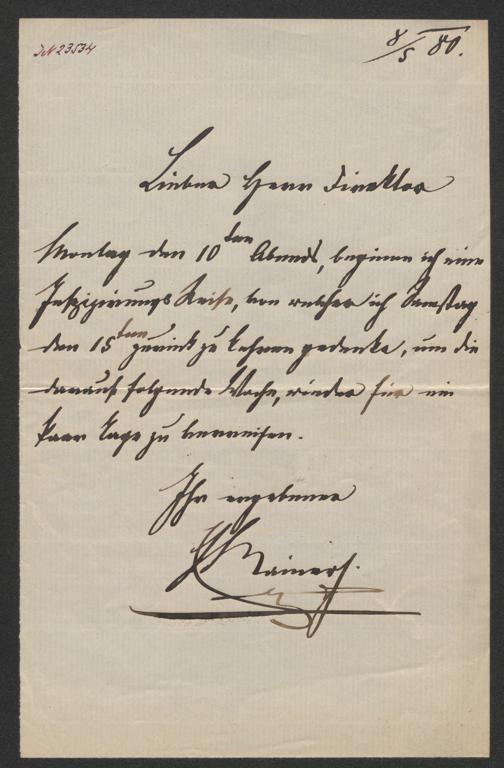 JN 23534
8/5 80.
Lieber Herr Direktor
Montag den 10ten Abends, beginne ich eine
Inspizirungs Reise, von welcher ich Samstag
den 15ten zurück zu kehren gedenke, um die
darauf folgende Woche, wieder für ein
paar Tage zu verreisen.
Ihr ergebener